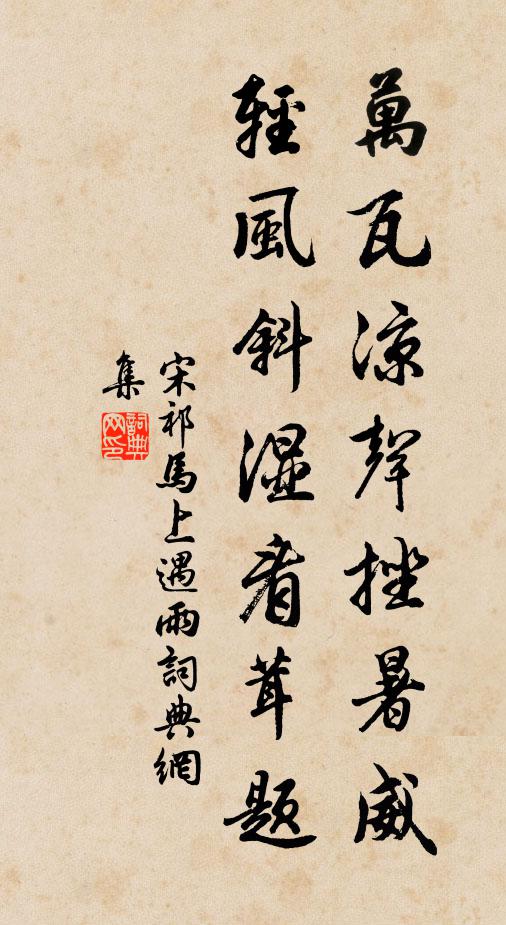 萬瓦涼聲挫暑威
輕風斜濕看茸題
宋祁馬上遇雨詞典網
集
詞典
网印